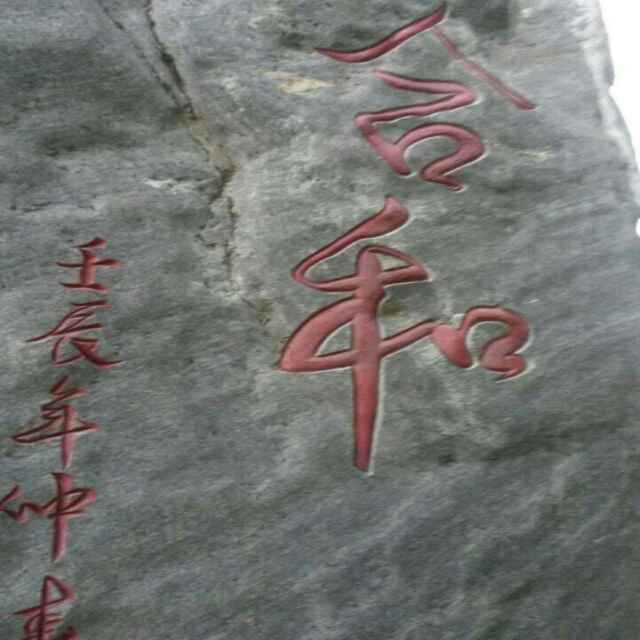 合和
壬辰年仲